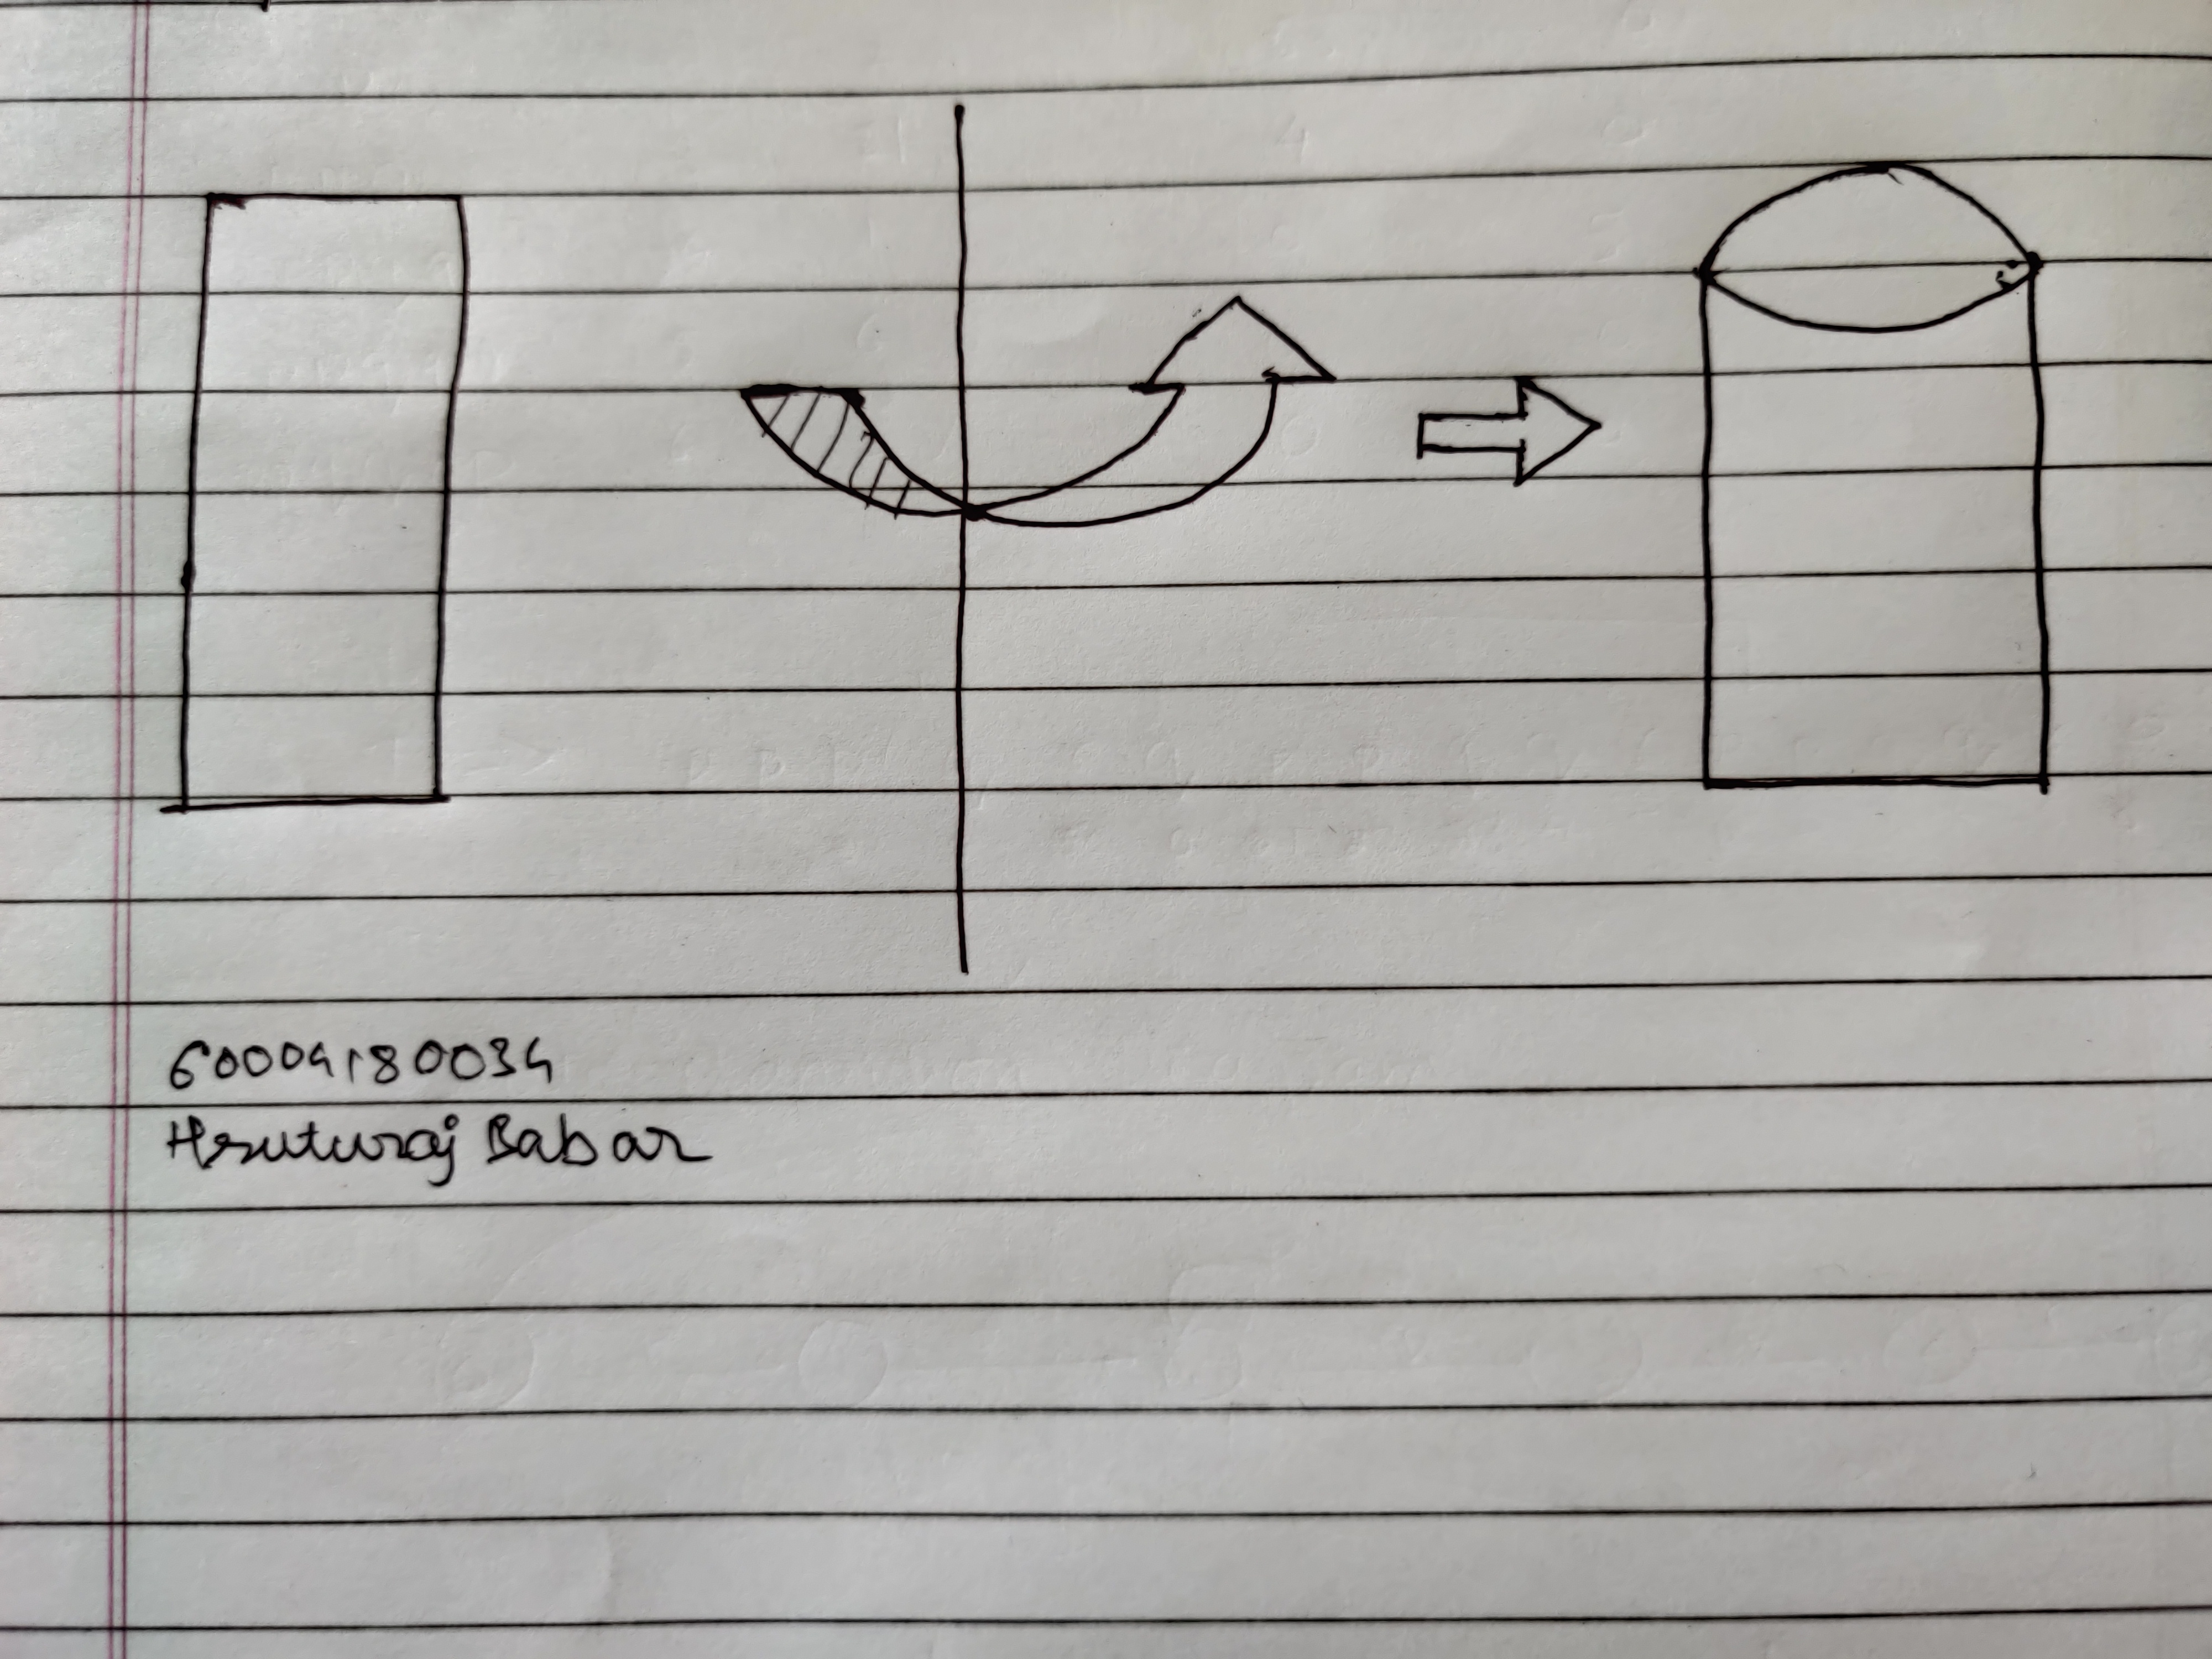 60004180034
Hruturaj Babar